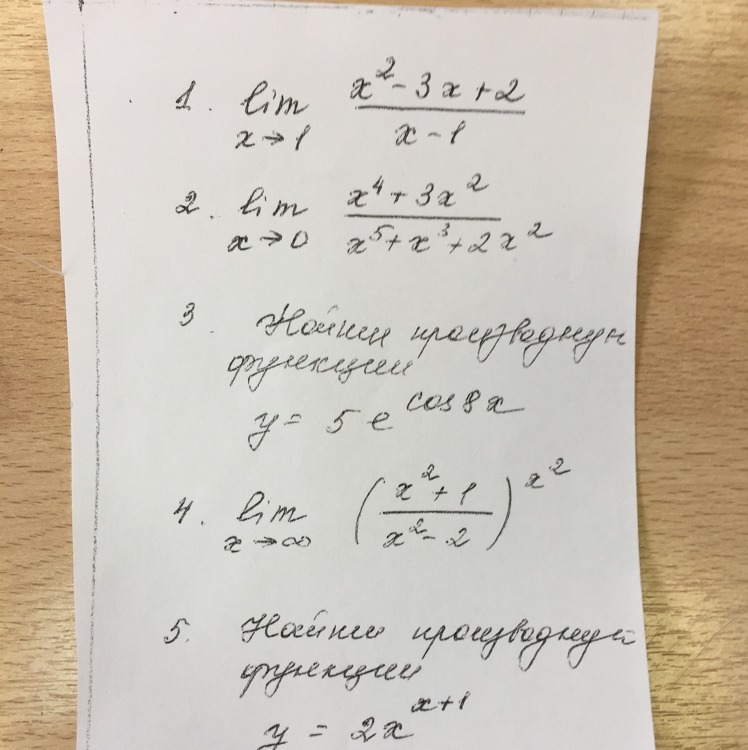 1. lim x→1 (x² - 3x + 2)/(x - 1)
2. lim x→0 (x⁴ + 3x²)/(x⁵ + x³ + 2x²)
3. Найти производную
функции
y = 5e^(cos8x)
4. lim x→∞ ((x² + 1)/(x² - 2))^(x²)
5. Найти производную
функции
y = 2x^(x+1)